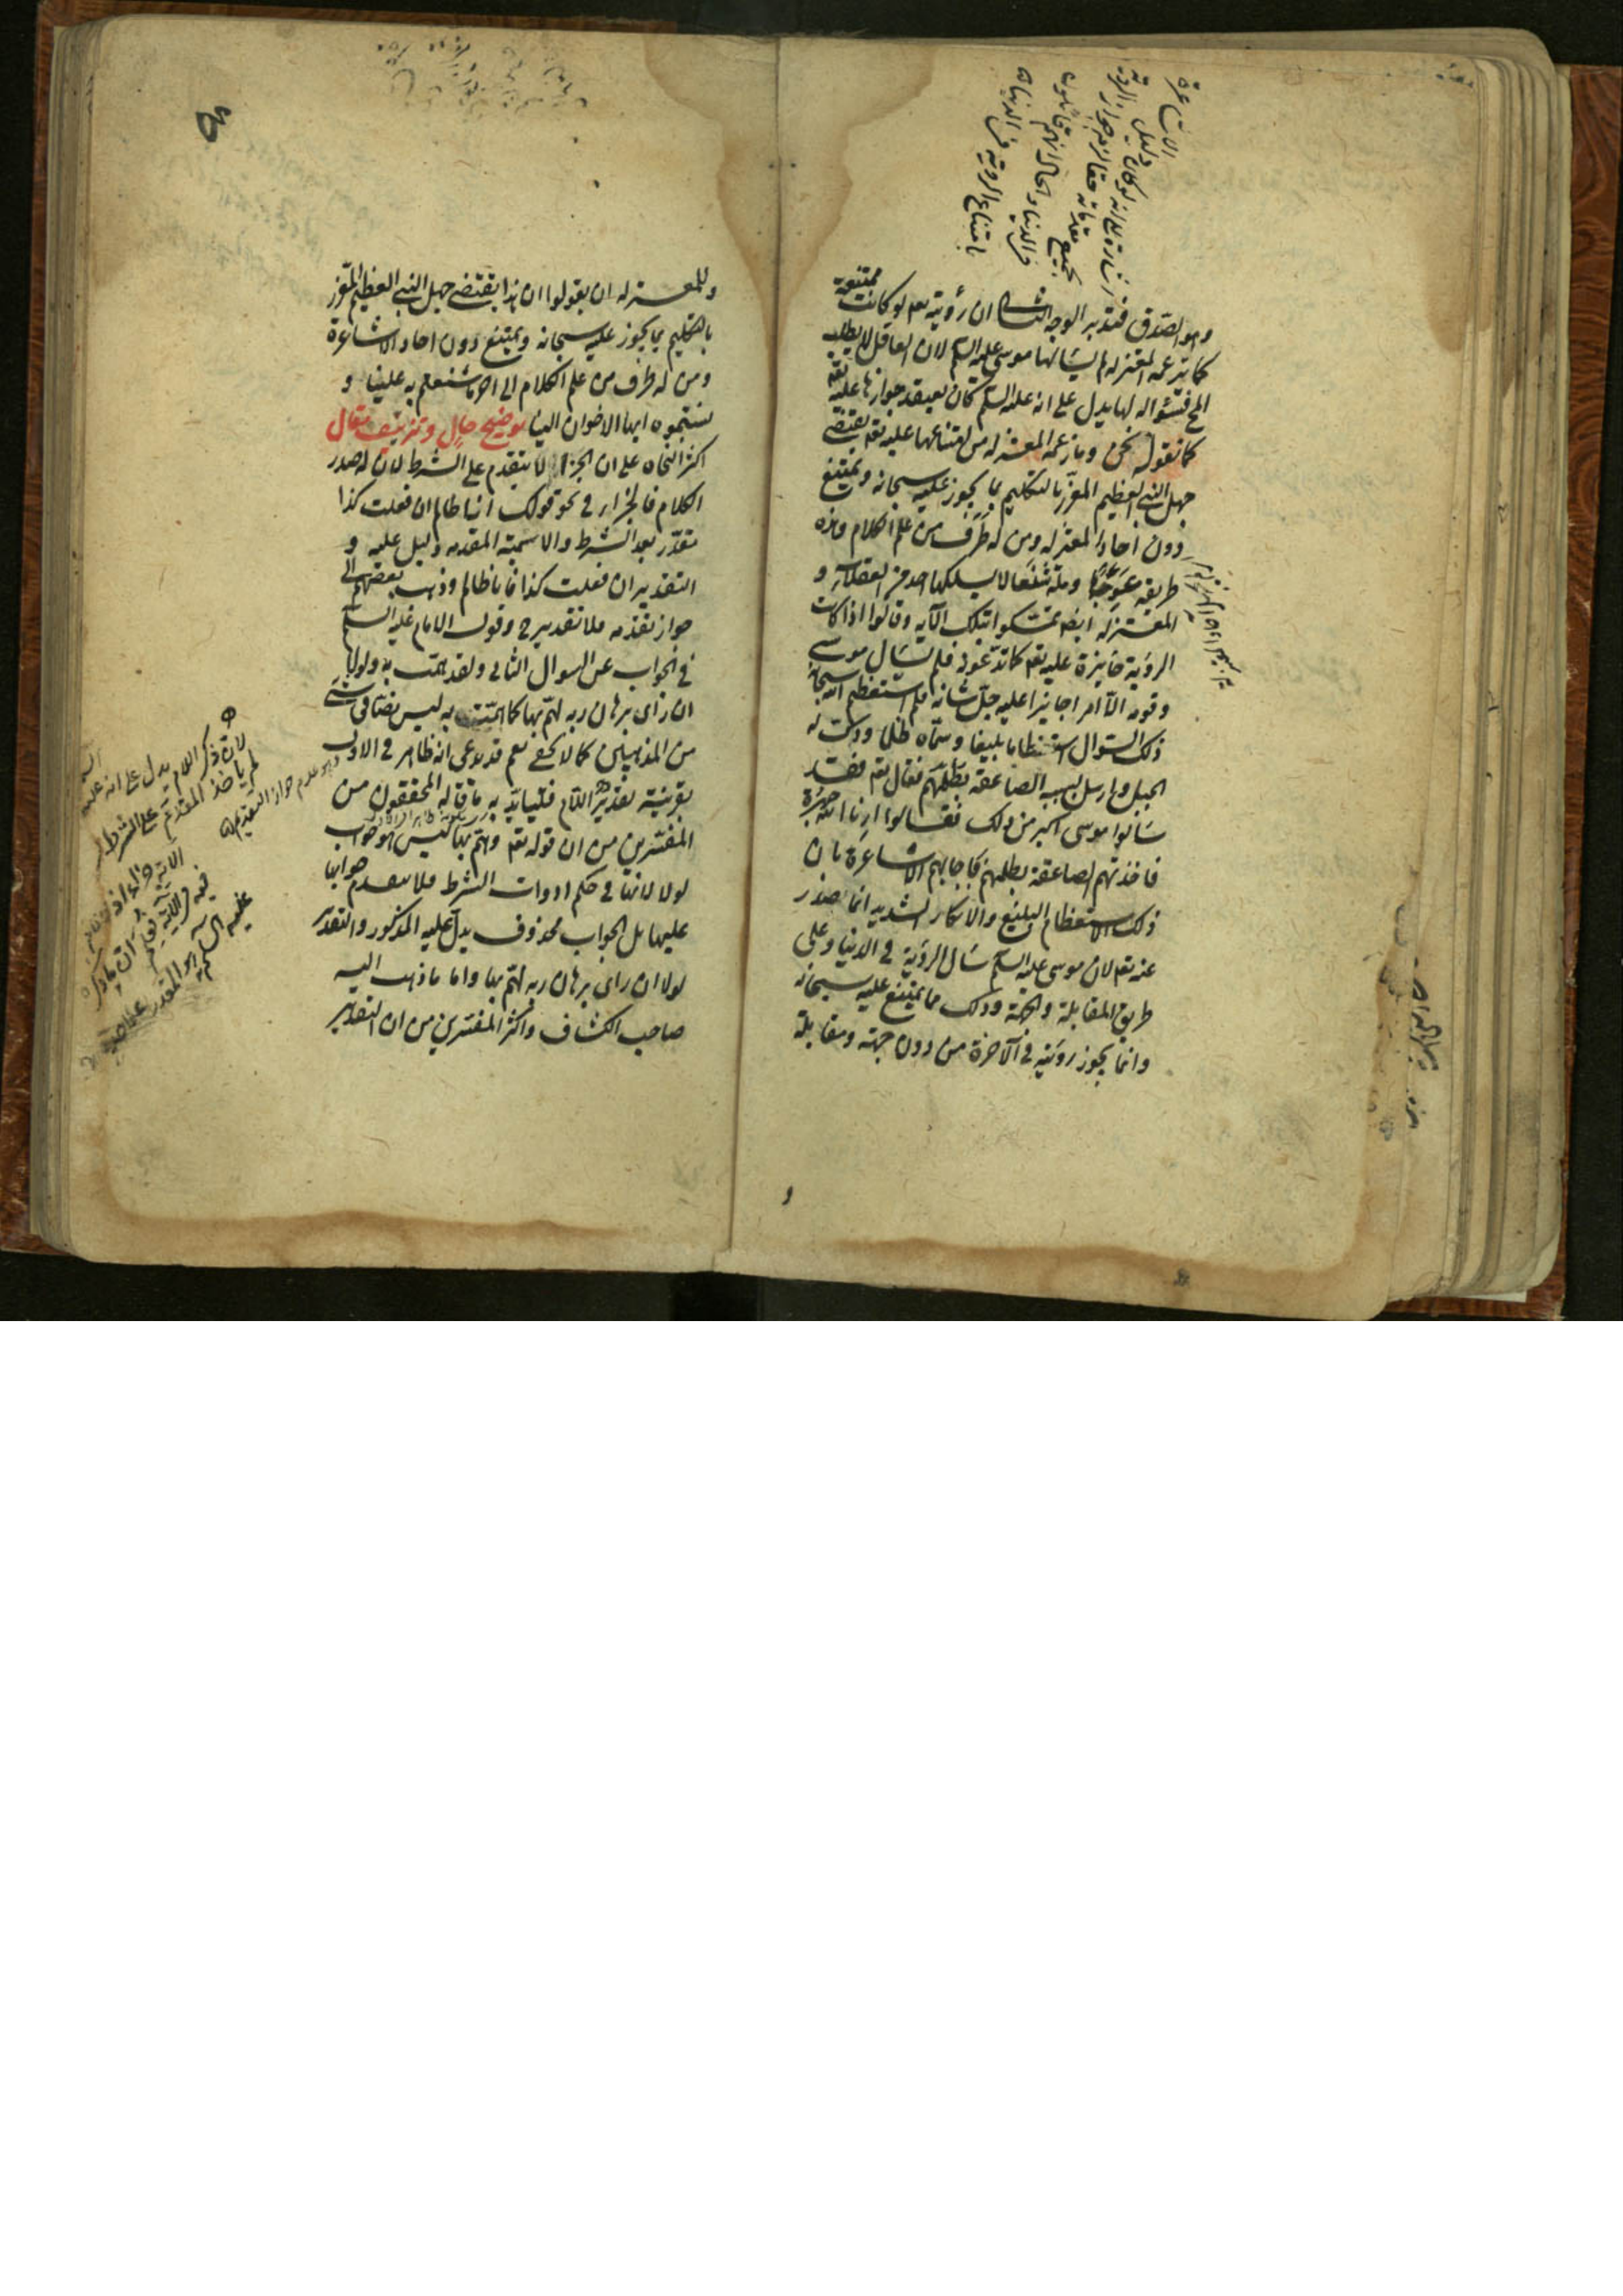 الاشاعرة
دليل الرؤية
بجميع مقدماته
في الدنيا والحال انهم قائلون
بامتناع الروية في الدنيا
وهو الصدق فتدبر الوجه الثاني ان رؤيته تعم لو كانت ممتنعة
كما تزعمه المعتزله لم يسالها موسى عليه السلم لان العاقل لا يطلب
المح فسؤاله لها يدل على انه عليه السلم كان يعتقد جوازها عليه تعم
كما نقوله نحن وما زعمه المعتزله من امتناعها عليه تعم يقتضي
جهل النبي العظيم المعزز بالتكليم بما يجوز عليه سبحانه ويمتنع
دون احاد المعتزله ومن له طرف من علم الكلام وهذه
طريقه عوجا وملة شنعا لا يسلكها احد من العقلاء و
المعتزله ايضا تمسكوا بتلك الآيه وقالوا اذا كانت
الرؤية جايزة عليه تعم كما تدعون فلم يسال موسى
وقومه الا امرا جايزا عليه جل شانه فلم استعظم الله سبحانه
ذلك السؤال استعظاما بليغا وسماه ظلما ودكت له
الجبل وارسل بسببه الصاعقه بظلمهم فقال تعم فقد
سألوا موسى اكبر من ذلك فقالوا ارنا الله جهرة
فاخذتهم الصاعقه بظلمهم فاجابهم الاشاعرة بان
ذلك الاستعظام البليغ والانكار الشديد انما صدر
عنه تعم لان موسى عليه السلم سال الرؤية في الدنيا وعلى
طريق المقابلة والجهة وذلك مما يمتنع عليه سبحانه
وانما يجوز رؤيته في الآخرة من دون جهته ومقابلة
و
وللمعتزله ان يقولوا ان هذا يقتضي جهل النبي العظيم المعزز
بالتكليم بما يجوز عليه سبحانه ويمتنع دون احاد الاشاعرة
ومن له طرف من علم الكلام الى اخر ما شنعتم به علينا و
نسبتموه ايها الاخوان الينا توضيح حال وتزييف مقال
اكثر النحاه على ان الجزاء لا يتقدم على الشرط لان له صدر
الكلام فالجزاء في نحو قولك انا ظالم ان فعلت كذا
مقدر بعد الشرط والاسمية المقدمه دليل عليه و
التقدير ان فعلت كذا فانا ظالم وذهب بعضهم الى
جواز تقدمه فلا تقدير ح وقول الامام عليه السلم
في الجواب عن السوال الثاني ولقد همت به ولولا
ان رأى برهان ربه لهم بها كما همت به ليس نصا في شيء
من المذهبين كما لا يخفى نعم قد يدعى انه ظاهر في الاول
بقرينة تقدير اللام فليتايد به ما قاله المحققون من
المفسرين من ان قوله تعم وهم بها ليس هو جواب
لولا لانها في حكم ادوات الشرط فلا يتقدم جوابها
عليها بل الجواب محذوف يدل عليه المذكور والتقدير
لولا ان راى برهان ربه لهم بها واما ما ذهب اليه
صاحب الكشاف واكثر المفسرين من ان التقدير
وهو عدم جواز التقديم
لان ذكر اللام يدل على انه عليه
عليه السلم هو المقدر